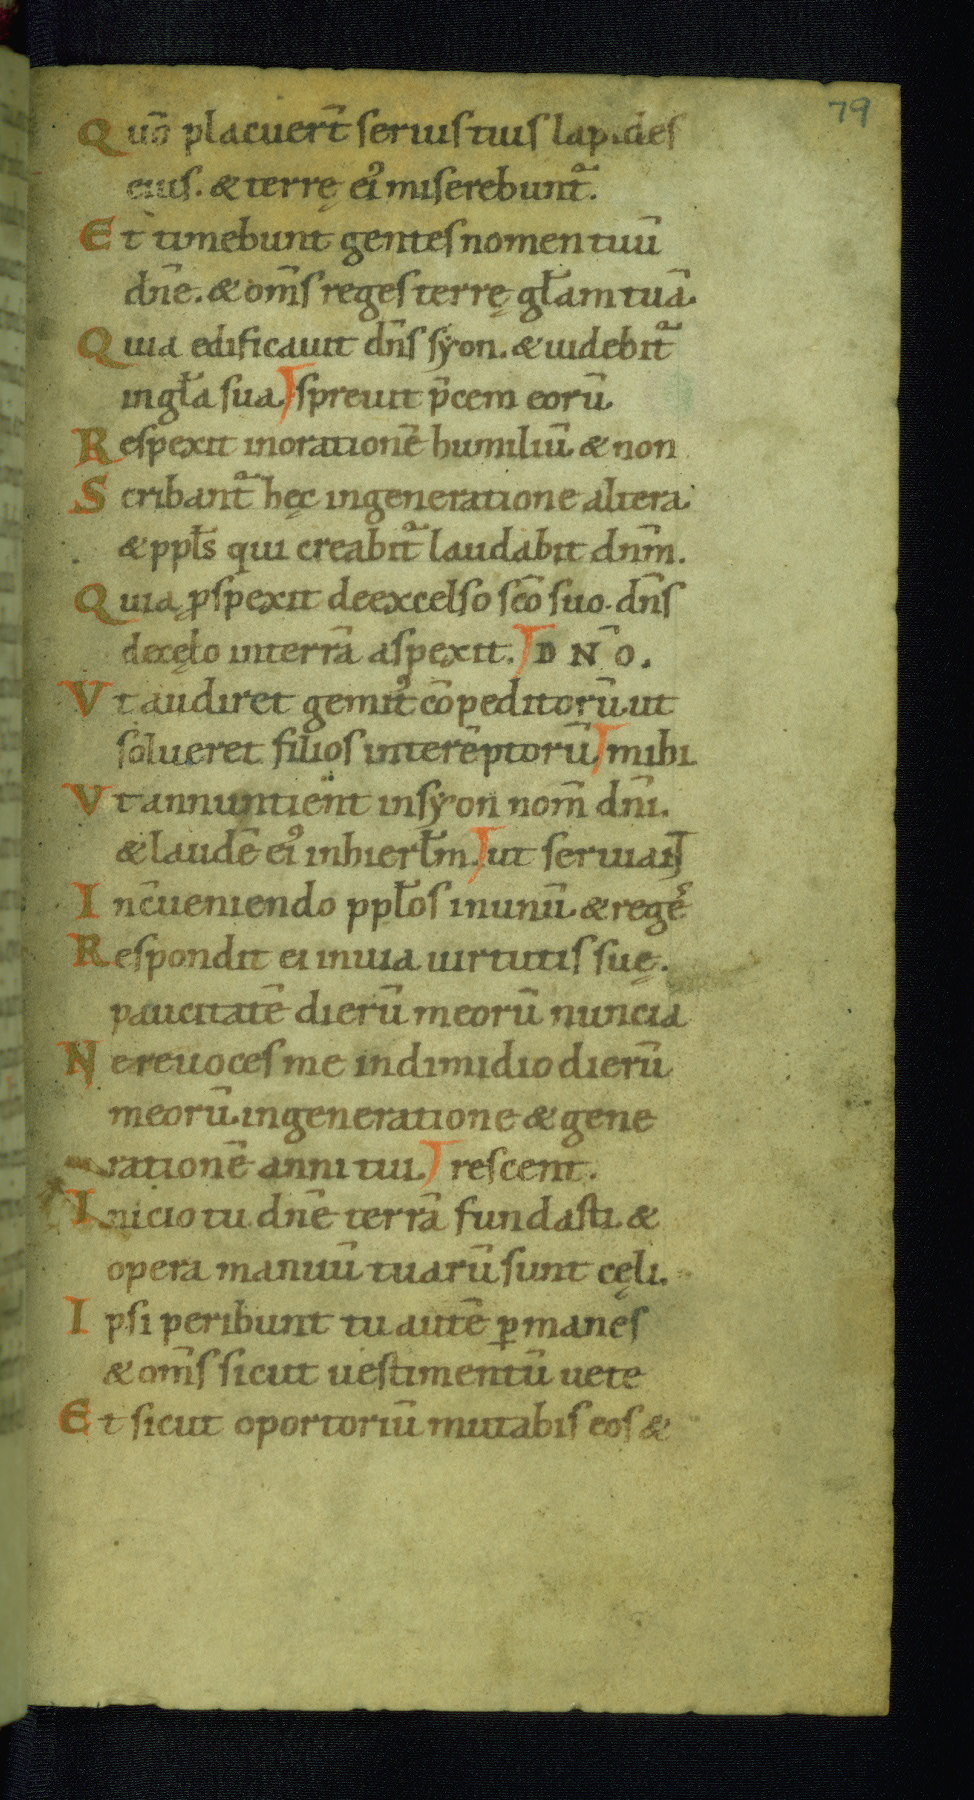 79
Quō placuer̄t seruis tuis lapides
eius. & terrę ei᷒ miserebunt᷑.
Et timebunt gentes nomen tuū
dn̄e. & om̄s reges terrę gl̄am tuā.
Quia edificauit dn̄s sẏon. & uidebit᷑
in gl̄a sua. spreuit p̄cem eorū.
Respexit in orationē humiliū. & non
Scribant᷑ hęc in generatione altera
& ppl̄s qui creabit᷑ laudabit dn̄m.
Quia ꝓspexit de excelso sc̄o suo. dn̄s
de cęlo in terrā aspexit. DN̄O.
Vt audiret gemit᷒ cōpeditorū. ut
solueret filios interēptorū. mihi
Vt annuntient in sẏon nom̄ dn̄i.
& laudē ei᷒ in hierl̄m. ut seruiant
In c̄ueniendo ppl̄os in unū. & reges
Respondit ei in uia uirtutis suę.
paucitatē dierū meorū nuncia
Ne reuoces me in dimidio dierū
meorū. in generatione & gene
rationē anni tui. rescent.
Inicio tu dn̄e terrā fundasti. &
opera manuū tuarū sunt cęli.
Ipsi peribunt tu autē ꝑmanes
& om̄s sicut uestimentū uete
Et sicut oportoriū mutabis eos &